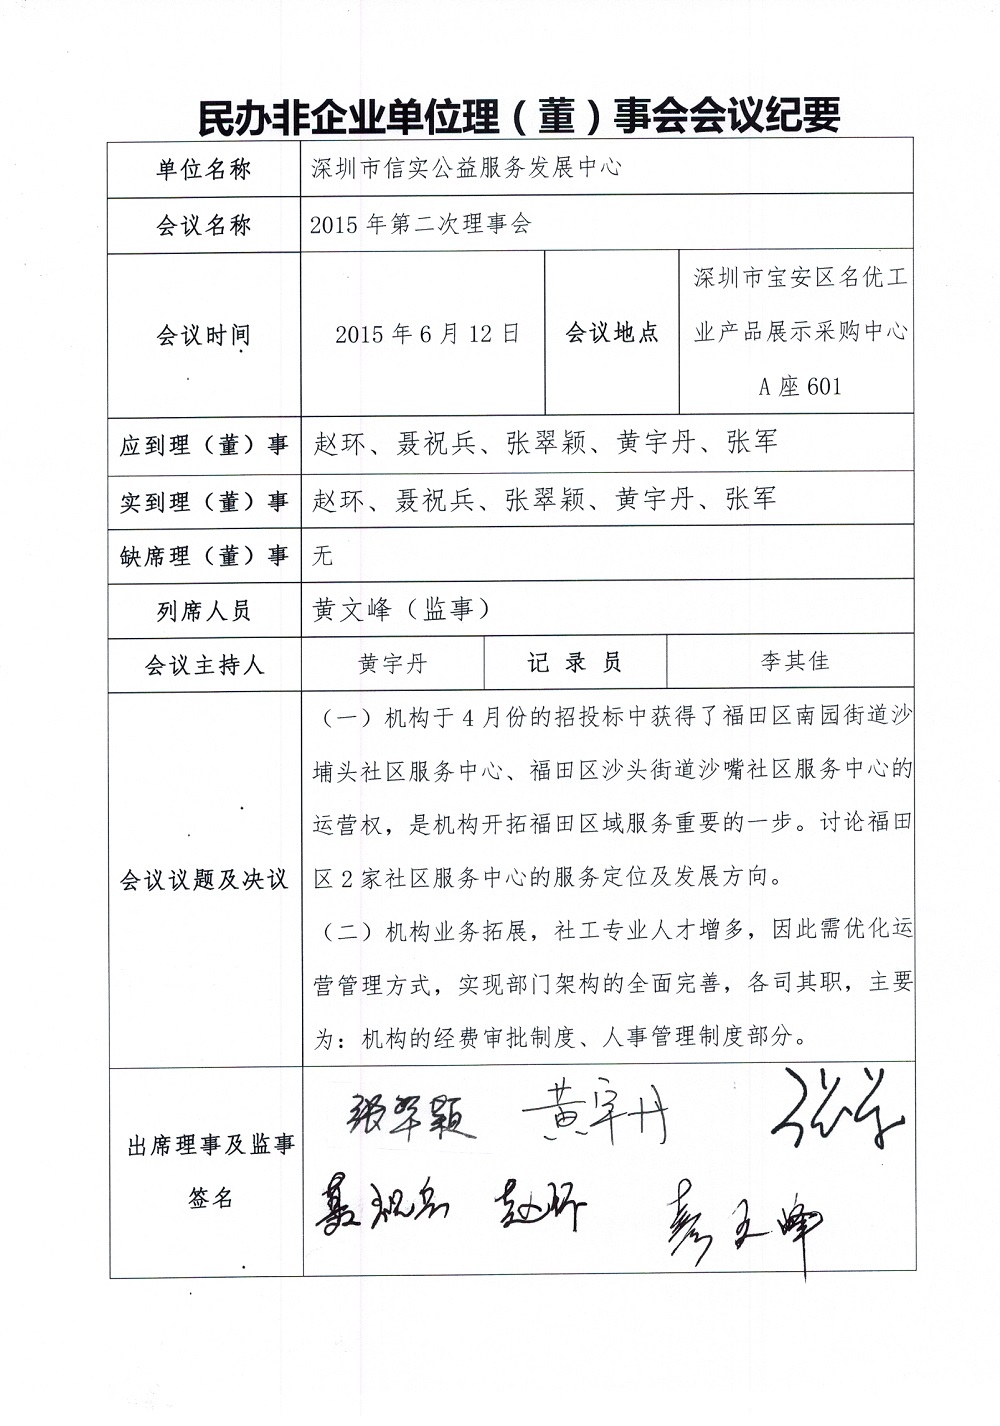 民办非企业单位理（董）事会会议纪要
单位名称 深圳市信实公益服务发展中心
会议名称 2015年第二次理事会
会议时间 2015年6月12日 会议地点 深圳市宝安区名优工
业产品展示采购中心
A座601
应到理（董）事 赵环、聂祝兵、张翠颖、黄宇丹、张军
实到理（董）事 赵环、聂祝兵、张翠颖、黄宇丹、张军
缺席理（董）事 无
列席人员 黄文峰（监事）
会议主持人 黄宇丹 记录员 李其佳
会议议题及决议
（一）机构于4月份的招投标中获得了福田区南园街道沙
埔头社区服务中心、福田区沙头街道沙嘴社区服务中心的
运营权，是机构开拓福田区域服务重要的一步。讨论福田
区2家社区服务中心的服务定位及发展方向。
（二）机构业务拓展，社工专业人才增多，因此需优化运
营管理方式，实现部门架构的全面完善，各司其职，主要
为：机构的经费审批制度、人事管理制度部分。
出席理事及监事
签名
张翠颖 黄宇丹 张军
聂祝兵 赵环 文峰